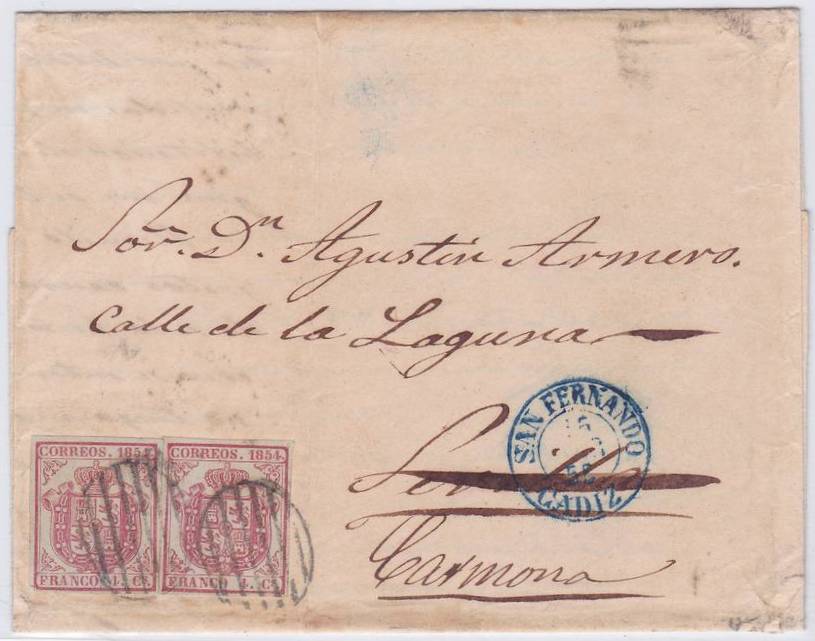 Sor. Dn. Agustin Armero.
Calle de la Laguna
SAN FERNANDO
15
CADIZ
Sevilla
Carmona
CORREOS. 1854
FRANCO 4. Cs.
CORREOS. 1854
FRANCO 4. Cs.